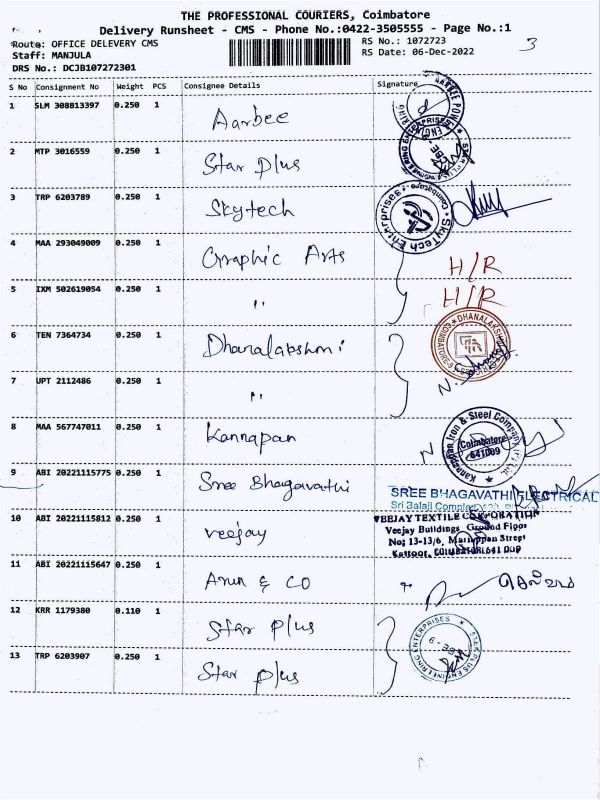 THE PROFESSIONAL COURIERS, Coimbatore
Delivery Runsheet - CMS - Phone No.:0422-3505555 - Page No.:1
Route: OFFICE DELEVERY CMS
RS No.: 1072723
3
Staff: MANJULA
RS Date: 06-Dec-2022
DRS No.: DCJB107272301
S No Consignment No Weight PCS Consignee Details Signature
1 SLM 308813397 0.250 1 Aarbee
2 MTP 3016559 0.250 1 Star Plus
3 TRP 6203789 0.250 1 Skytech
SkyTech Enterprises Coimbatore
4 MAA 293049009 0.250 1 Graphic Arts H/R
5 IXM 502619054 0.250 1 " H/R
6 TEN 7364734 0.250 1 Dhanalakshmi
7 UPT 2112486 0.250 1 " N.
8 MAA 567747011 0.250 1 Kannapan N
Kannappan Iron & Steel Company
Coimbatore
641009
9 ABI 20221115775 0.250 1 Sree Bhagavathi
SREE BHAGAVATHI ELECTRICAL
Sri Balaji Complex
10 ABI 20221115812 0.250 1 Veejay
VEEJAY TEXTILE CORPORATION
Veejay Buildings, Ground Floor
No: 13-13/6, Mariappan Street
Kattoor, COIMBATORE 641 009
11 ABI 20221115647 0.250 1 Arun & CO
12 KRR 1179380 0.110 1 Star Plus
STAR PLUS ENGINEERING ENTERPRISES
13 TRP 6203907 0.250 1 Star Plus